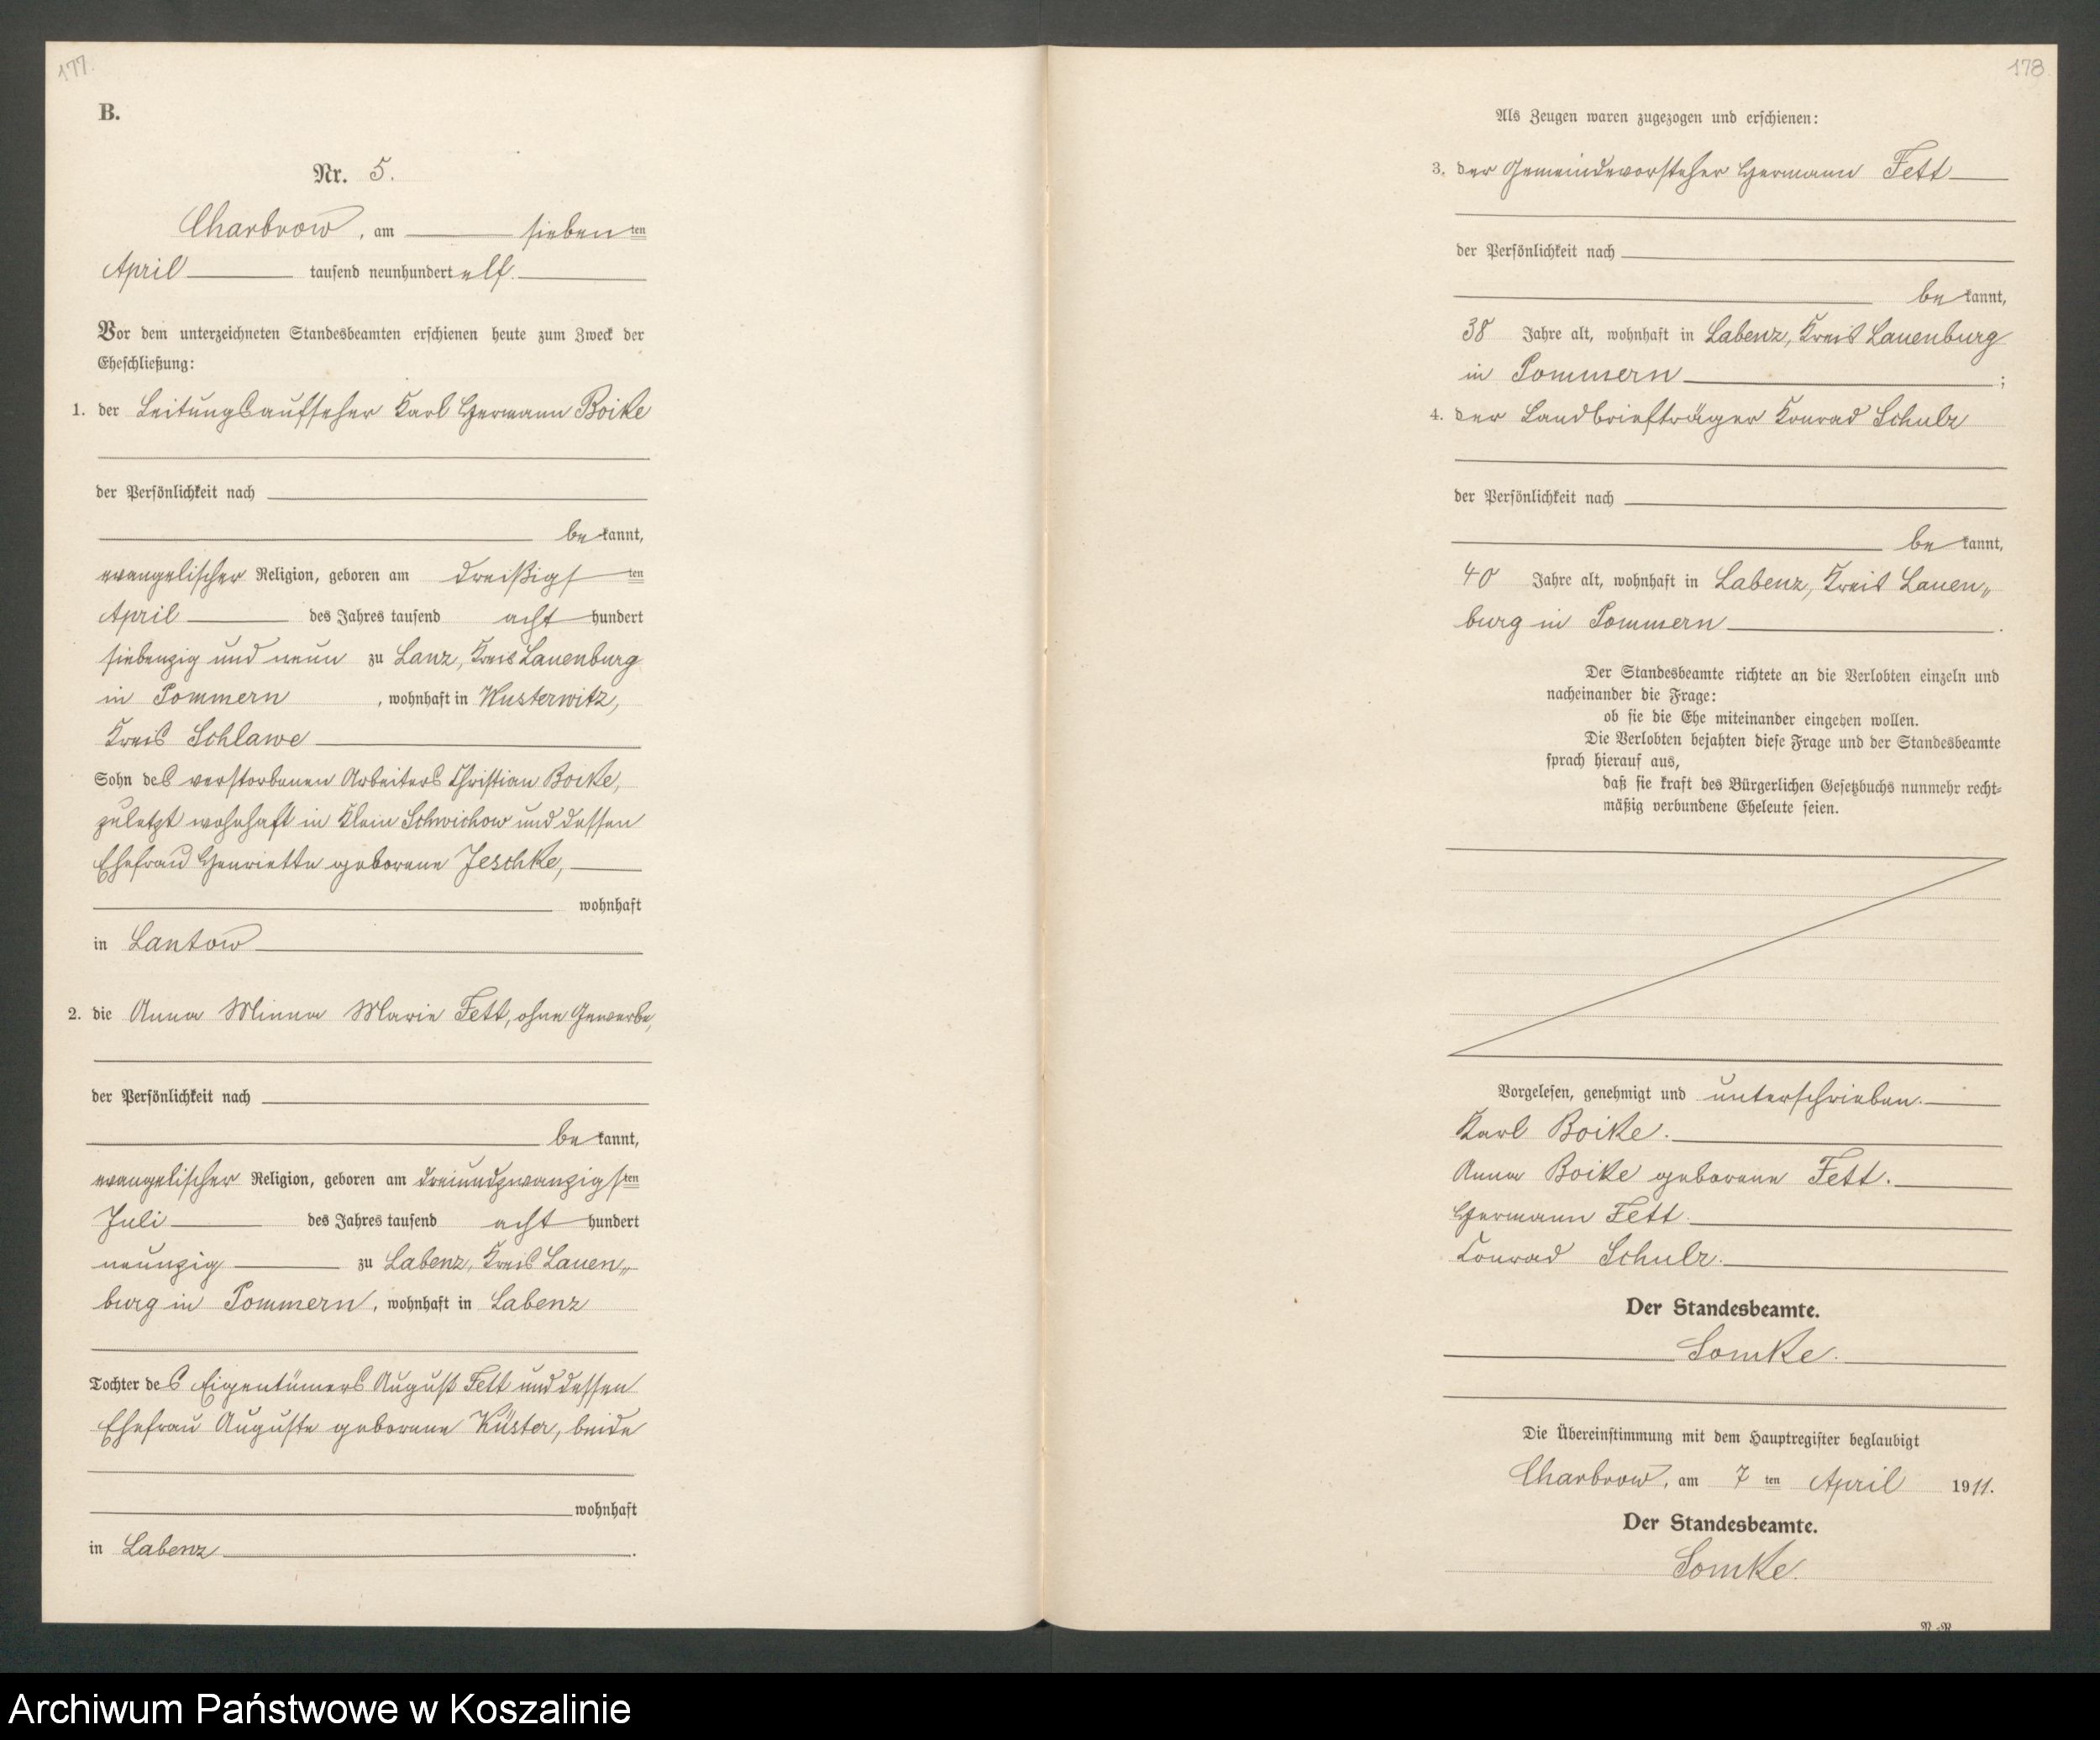 177.
B.
Nr. 5.
Charbrow, am sieben ten
April tausend neunhundert elf.
Vor dem unterzeichneten Standesbeamten erschienen heute zum Zweck der
Eheschließung:
1. der Leitungsaufseher Karl Hermann Boike
der Persönlichkeit nach
be kannt,
evangelischer Religion, geboren am dreißigs ten
April des Jahres tausend acht hundert
siebenzig und neun zu Lanz, Kreis Lauenburg
in Pommern, wohnhaft in Kusterwitz,
Kreis Schlawe
Sohn des verstorbenen Arbeiters Christian Boike,
zuletzt wohnhaft in Klein Schwichow und dessen
Ehefrau Henriette geborene Jeschke,
wohnhaft
in Lantow
2. die Anna Minna Marie Fett, ohne Gewerbe,
der Persönlichkeit nach
be kannt,
evangelischer Religion, geboren am dreiundzwanzigs ten
Juli des Jahres tausend acht hundert
neunzig zu Labenz, Kreis Lauen„
burg in Pommern, wohnhaft in Labenz
Tochter des Eigentümers August Fett und dessen
Ehefrau Auguste geborene Küster, beide
wohnhaft
in Labenz.
178
Als Zeugen waren zugezogen und erschienen:
3. der Gemeindevorsteher Hermann Fett
der Persönlichkeit nach
be kannt,
38 Jahre alt, wohnhaft in Labenz, Kreis Lauenburg
in Pommern;
4. der Landbriefträger Konrad Schulz
der Persönlichkeit nach
be kannt,
40 Jahre alt, wohnhaft in Labenz, Kreis Lauen„
burg in Pommern.
Der Standesbeamte richtete an die Verlobten einzeln und
nacheinander die Frage:
ob sie die Ehe miteinander eingehen wollen.
Die Verlobten bejahten diese Frage und der Standesbeamte
sprach hierauf aus,
daß sie kraft des Bürgerlichen Gesetzbuchs nunmehr recht-
mäßig verbundene Eheleute seien.
Vorgelesen, genehmigt und unterschrieben.
Karl Boike.
Anna Boike geborene Fett.
Hermann Fett.
Conrad Schulz.
Der Standesbeamte.
Somke.
Die Übereinstimmung mit dem Hauptregister beglaubigt
Charbrow, am 7 ten April 1911.
Der Standesbeamte.
Somke.
Archiwum Państwowe w Koszalinie